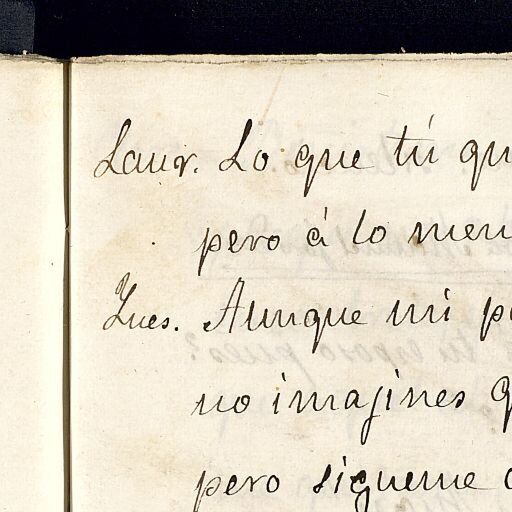 Laur. Lo que tú qu
pero á lo men
Ynes. Aunque mi p
no imagines q
pero sigueme